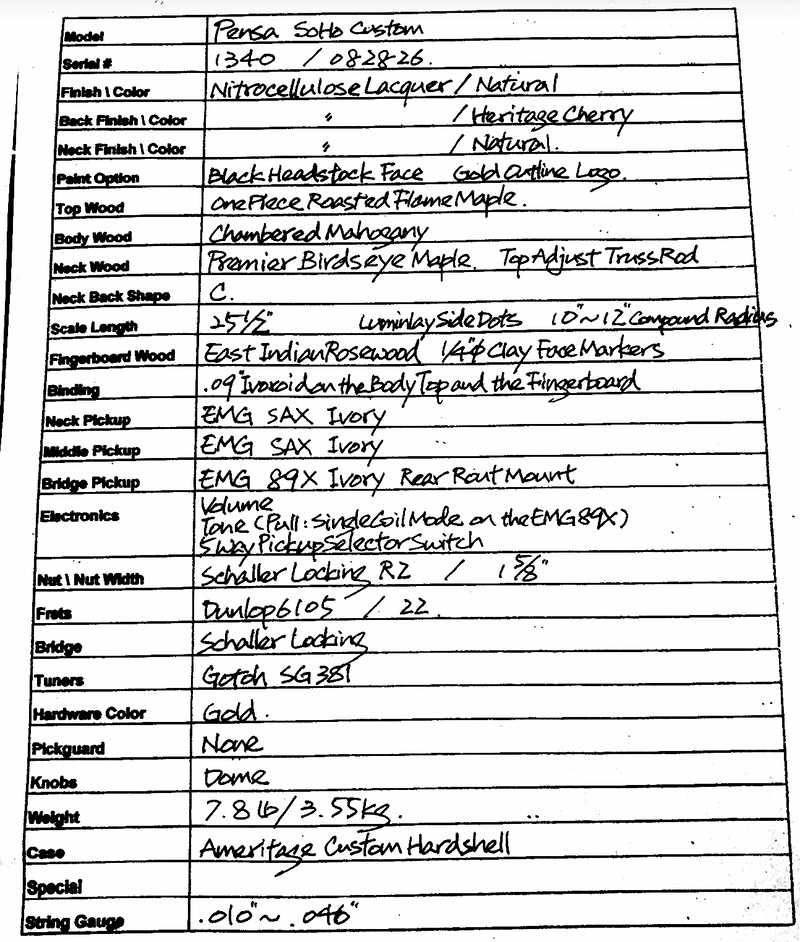 Model Pensa SoHo Custom
Serial # 1340 / 082826.
Finish \ Color Nitrocellulose Lacquer / Natural
Back Finish \ Color " / Heritage Cherry
Neck Finish \ Color " / Natural.
Paint Option Black Headstock Face Gold Outline Logo.
Top Wood One Piece Roasted Flame Maple.
Body Wood Chambered Mahogany
Neck Wood Premier Birdseye Maple. Top Adjust Truss Rod
Neck Back Shape C.
Scale Length 25 1/2" Luminlay Side Dots 10"~12" Compound Radius
Fingerboard Wood East Indian Rosewood 1/4"φ Clay Face Markers
Binding .09" Ivoroid on the Body Top and the Fingerboard
Neck Pickup EMG SAX Ivory
Middle Pickup EMG SAX Ivory
Bridge Pickup EMG 89X Ivory Rear Rout Mount
Electronics Volume
Tone (Pull: Single Coil Mode on the EMG 89X)
5 Way Pickup Selector Switch
Nut \ Nut Width Schaller Locking R2 / 1 5/8"
Frets Dunlop 6105 / 22.
Bridge Schaller Locking
Tuners Gotoh SG381
Hardware Color Gold.
Pickguard None
Knobs Dome
Weight 7.8 lb / 3.55kg.
Case Ameritage Custom Hardshell
Special
String Gauge .010"~ .046"